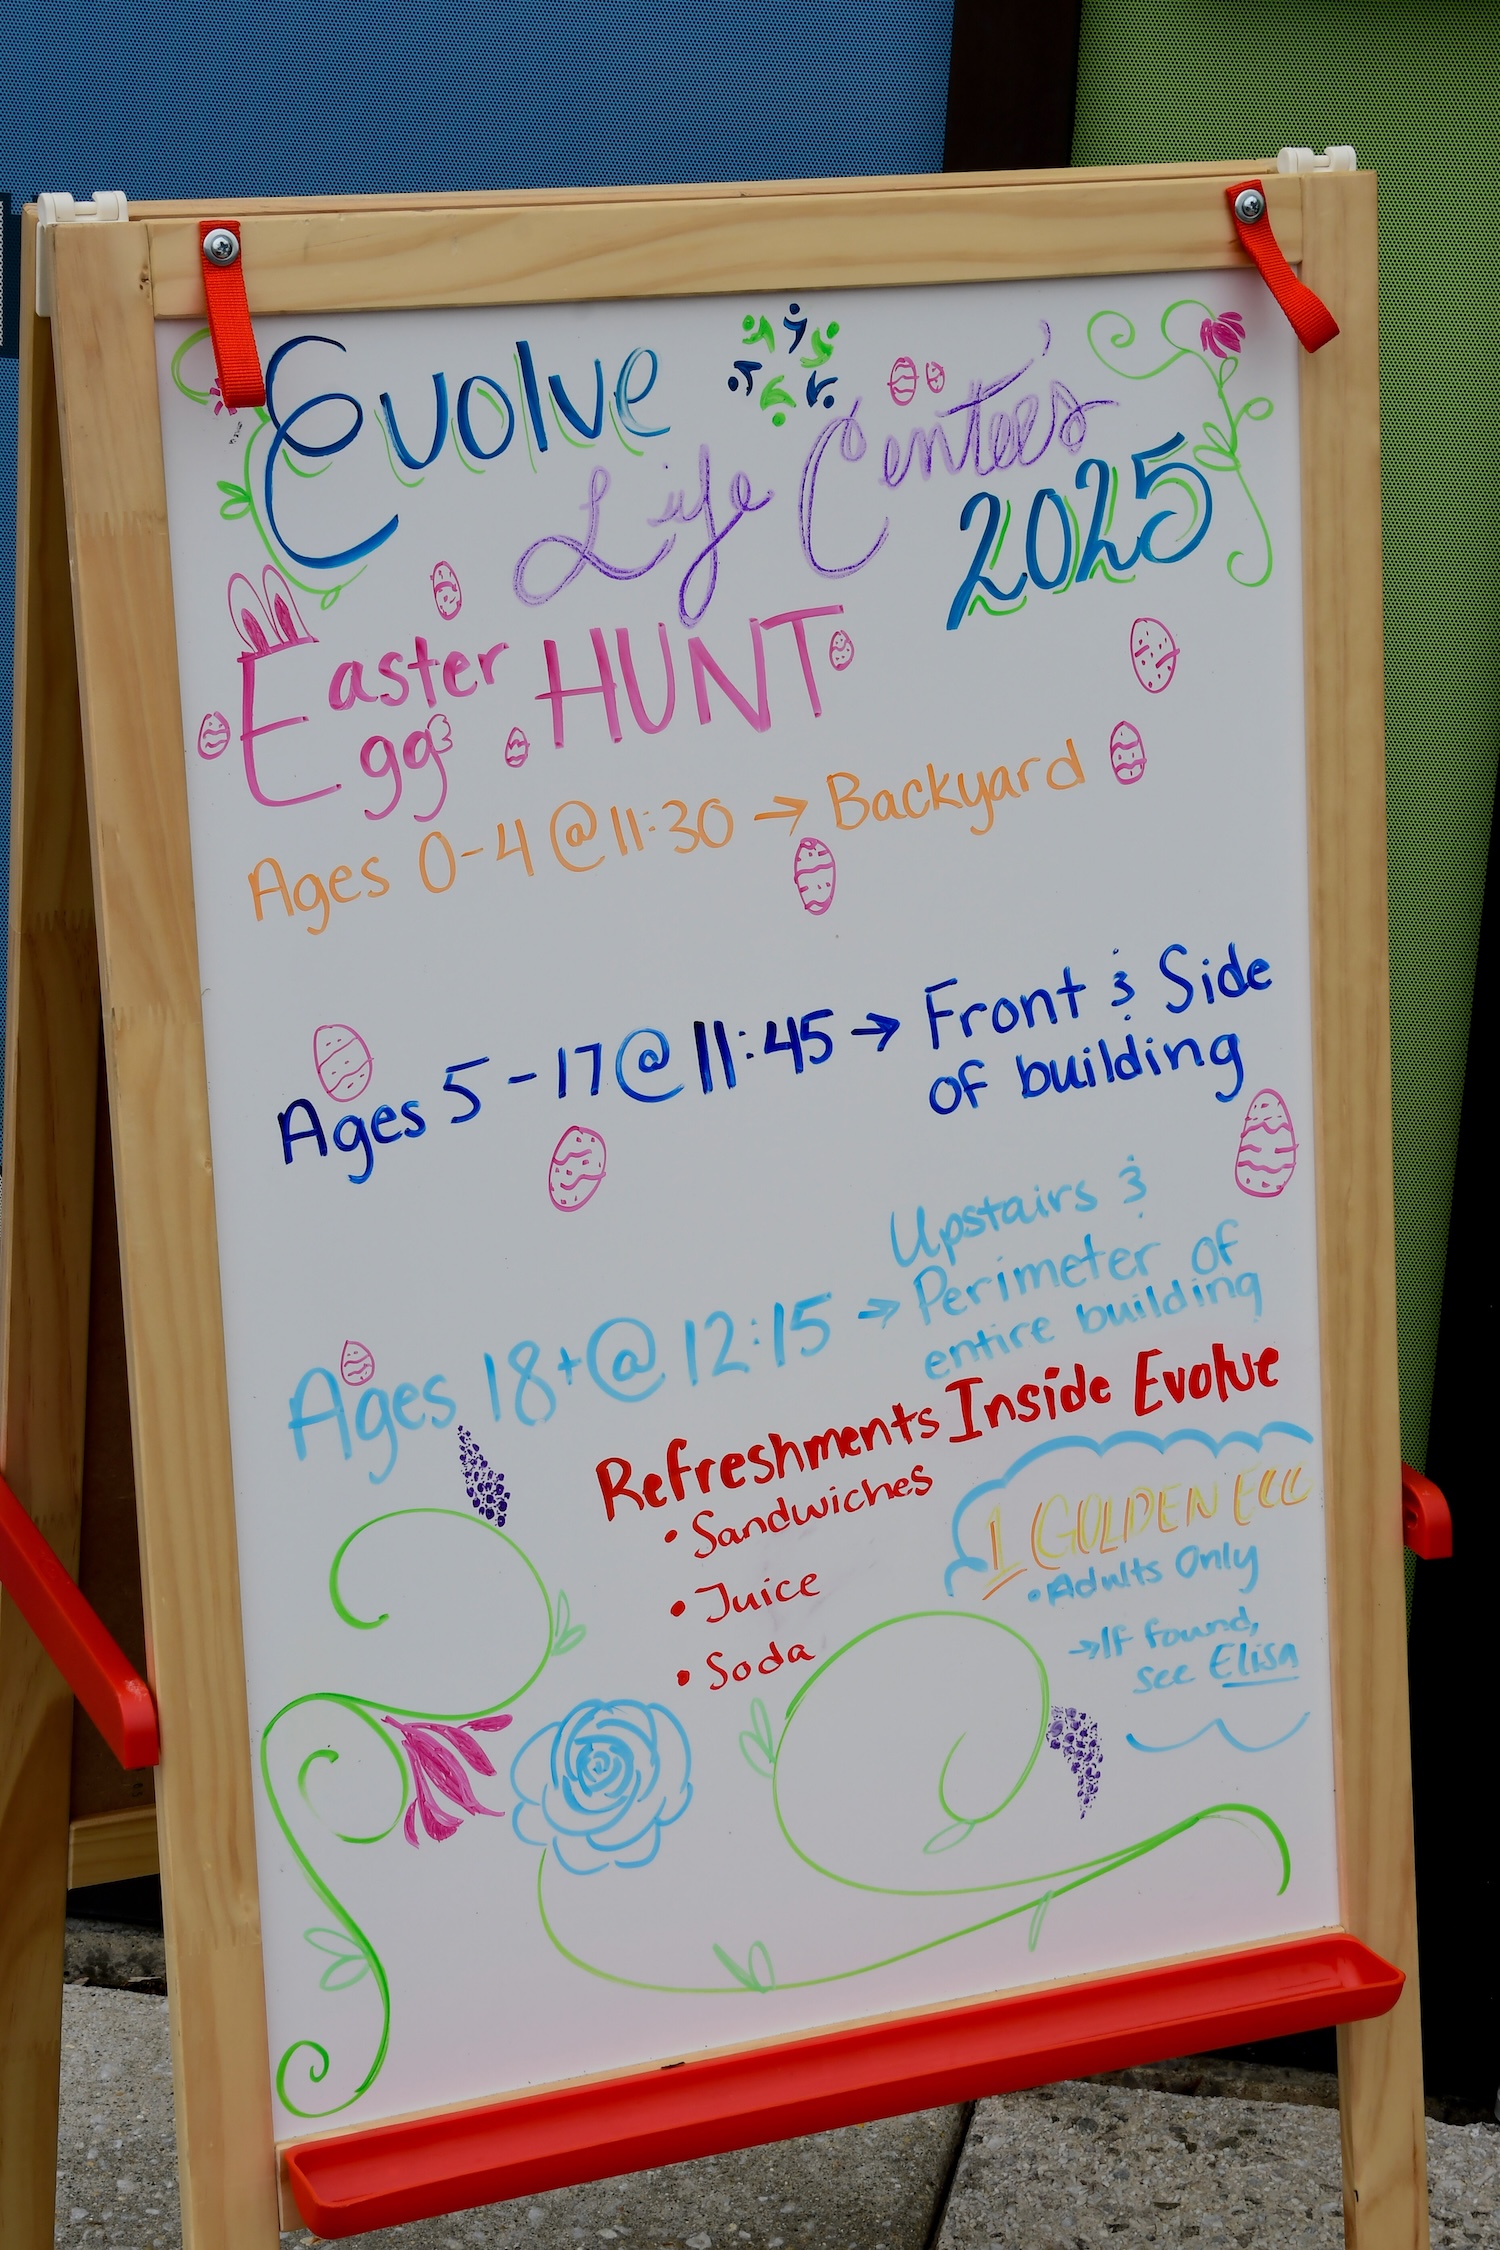 Evolve
Life Center's
2025
Easter HUNT
Egg
Ages 0-4 @ 11:30 → Backyard
Ages 5-17 @ 11:45 → Front & Side
of building
Upstairs &
Ages 18+ @ 12:15 → Perimeter of
entire building
Refreshments Inside Evolve
• Sandwiches
• Juice
• Soda
1 GOLDEN EGG
• Adults Only
→ If found,
see Elisa